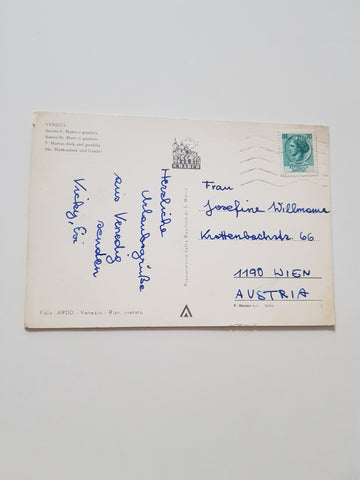 VENEZIA
Bacino S. Marco e gondola
Bassin St. Marc et gondole
S. Marcus dock and gondola
Skt. Markusdock und Gondel
Herzliche
Urlaubsgrüße
aus Venedig
senden
Vicky, Evi
Procuratoria della Basilica di S. Marco
Frau
Josefine Willmann
Krottenbachstr. 66
1190 WIEN
AUSTRIA
Ediz. ARDO - Venezia - Ripr. vietata